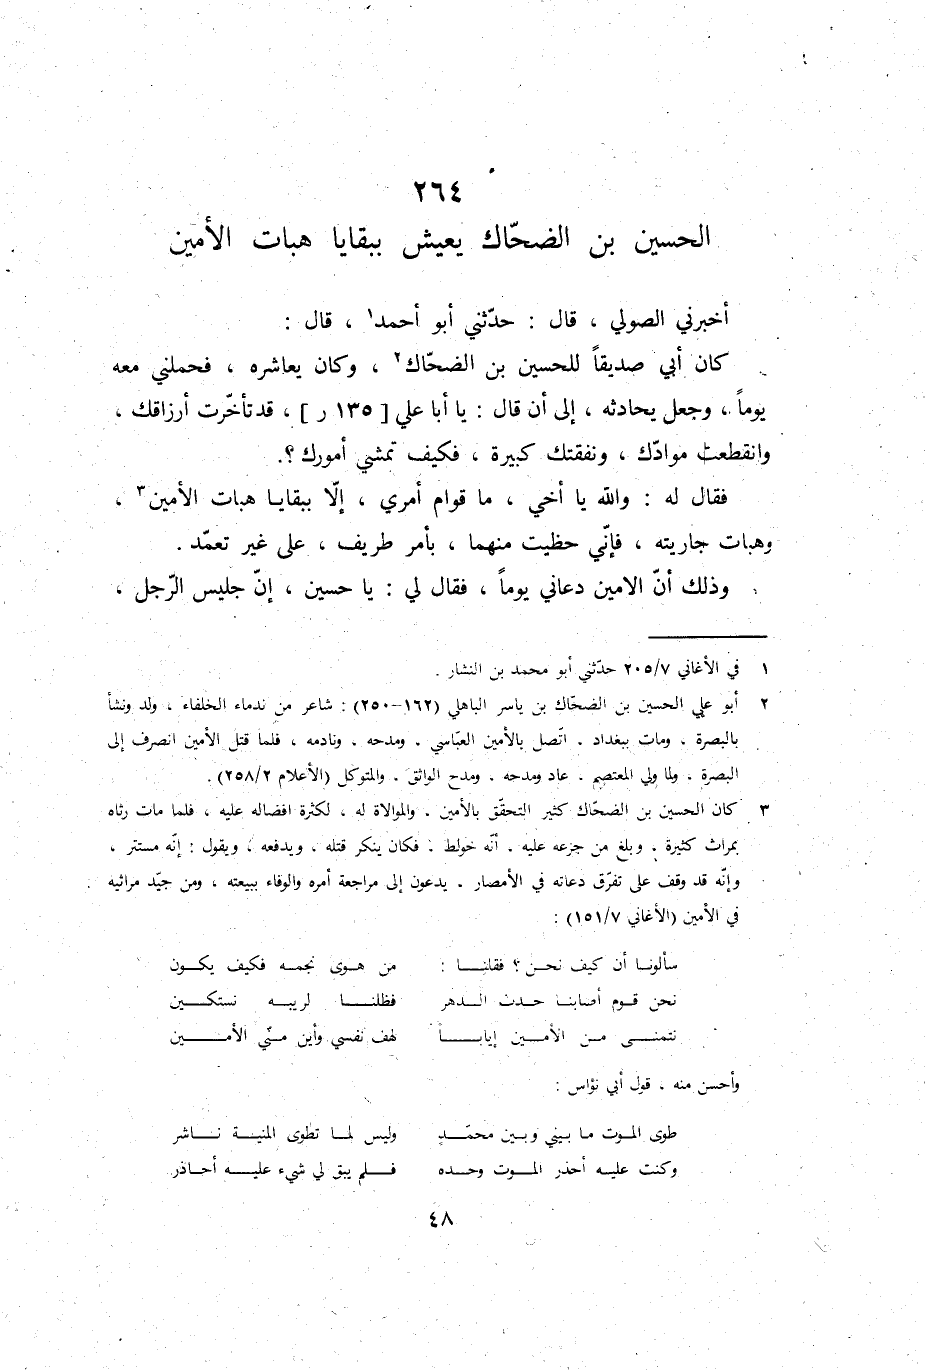 ٢٦٤
الحسين بن الضحّاك يعيش ببقايا هبات الأمين
أخبرني الصولي ، قال : حدّثني أبو أحمد١ ، قال :
كان أبي صديقاً للحسين بن الضحّاك٢ ، وكان يعاشره ، فحملني معه
يوماً ، وجعل يحادثه ، إلى أن قال : يا أبا علي [ ١٣٥ ر ] ، قد تأخّرت أرزاقك ،
وانقطعت موادّك ، ونفقتك كبيرة ، فكيف تمشي أمورك ؟.
فقال له : والله يا أخي ، ما قوام أمري ، إلّا ببقايا هبات الأمين٣ ،
وهبات جاريته ، فإنّي حظيت منهما ، بأمر طريف ، على غير تعمّد .
وذلك أنّ الامين دعاني يوماً ، فقال لي : يا حسين ، إنّ جليس الرّجل ،
١ في الأغاني ٢٠٥/٧ حدّثني أبو محمد بن النشار .
٢ أبو علي الحسين بن الضحّاك بن ياسر الباهلي (١٦٢-٢٥٠) : شاعر من ندماء الخلفاء ، ولد ونشأ
بالبصرة ، ومات ببغداد ، اتّصل بالأمين العبّاسي ، ومدحه ، ونادمه ، فلما قتل الأمين انصرف إلى
البصرة ، ولما ولي المعتصم ، عاد ومدحه ، ومدح الواثق ، والمتوكل (الأعلام ٢٥٨/٢) .
٣ كان الحسين بن الضحّاك كثير التحقّق بالأمين ، والموالاة له ، لكثرة افضاله عليه ، فلما مات رثاه
بمراث كثيرة ، وبلغ من جزعه عليه ، أنّه خولط ، فكان ينكر قتله ، ويدفعه ، ويقول : إنّه مستتر ،
وإنّه قد وقف على تفرّق دعاته في الأمصار ، يدعون إلى مراجعة أمره والوفاء ببيعته ، ومن جيّد مراثيه
في الأمين (الأغاني ١٥١/٧) :
سألونا أن كيف نحن ؟ فقلنا : من هوى نجمه فكيف يكون
نحن قوم أصابنا حدث الدهر فظلنا لريبه نستكين
نتمنى من الأمين إياباً لهف نفسي وأين منّي الأمين
وأحسن منه ، قول أبي نؤاس :
طوى الموت ما بيني وبين محمّد وليس لما تطوى المنية ناشر
وكنت عليه أحذر الموت وحده فلم يبق لي شيء عليه أحاذر
٤٨